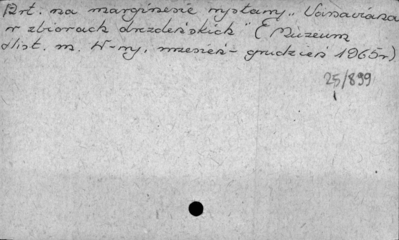 Art. na marginesie wystawy „Varsaviana
w zbiorach drezdeńskich" (Muzeum
Hist. m. W-wy, wrzesień - grudzień 1965r)
25/899